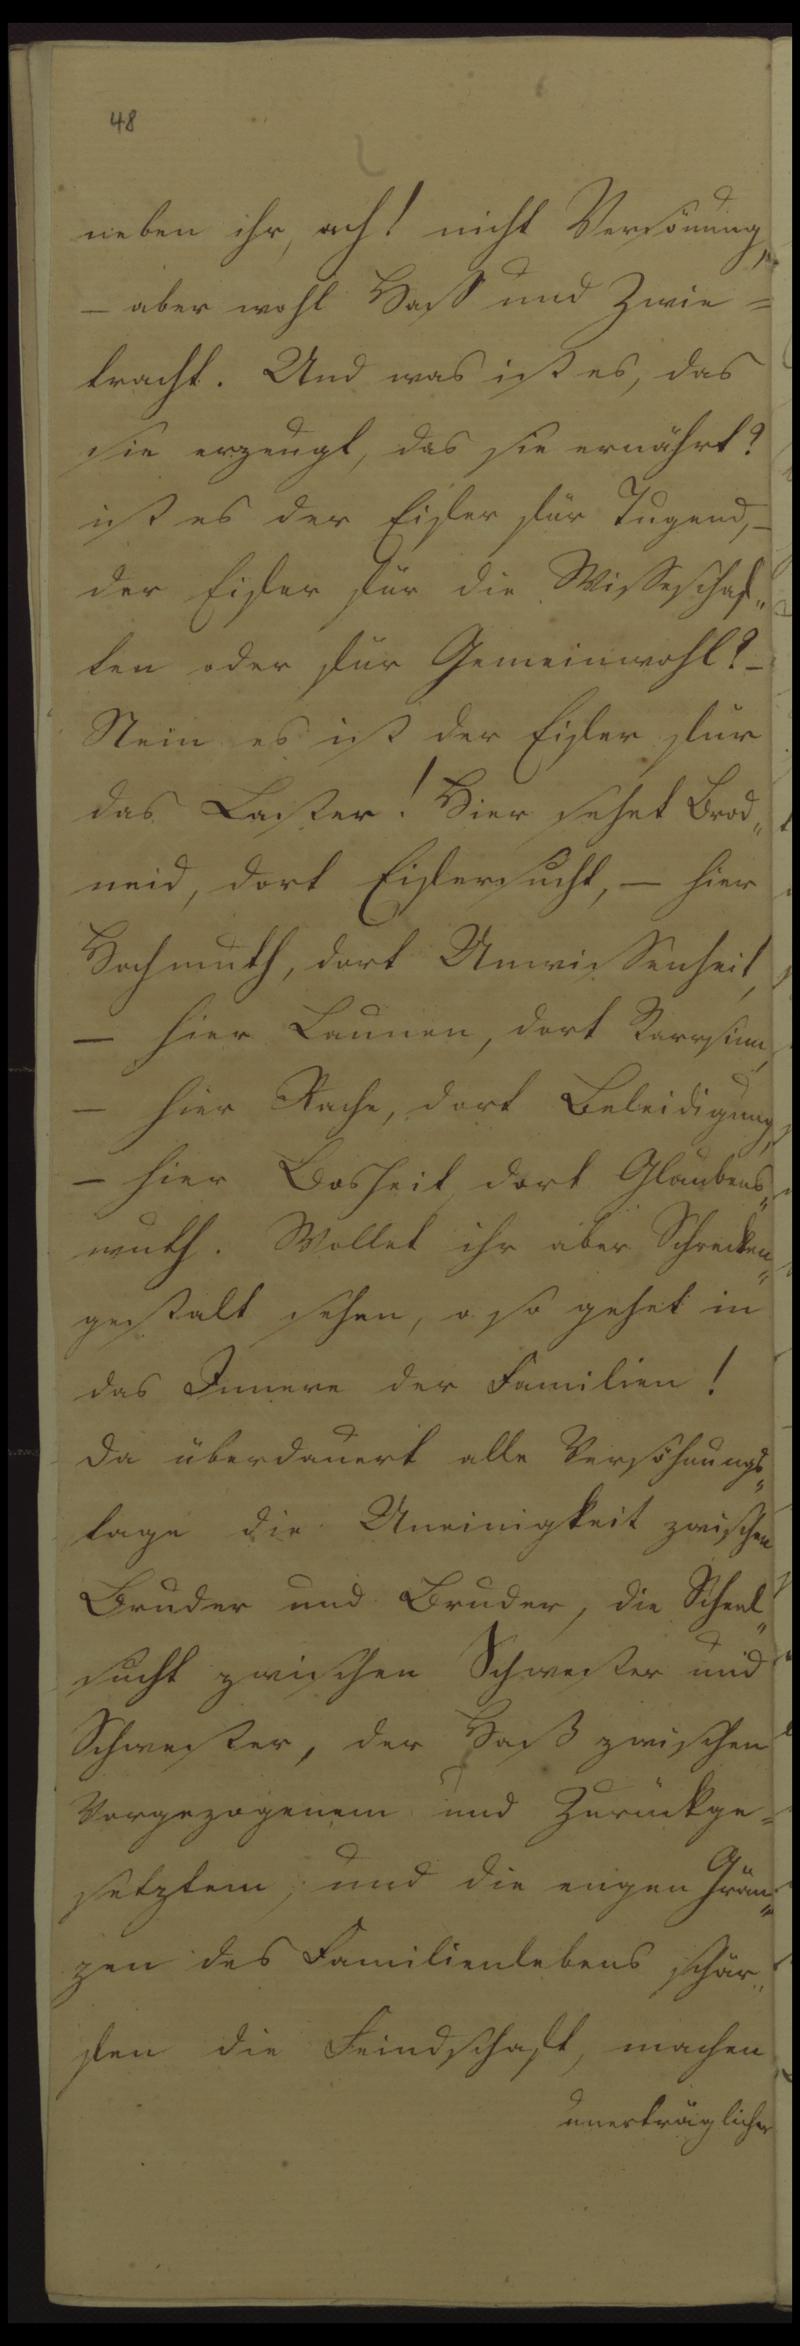 48
neben ihr, ach! nicht Versönung,
– aber wohl Hass und Zwie=
tracht. Und was ist es, das
sie erzeugt, das sie ernährt?
ist es der Eifer für Tugend, –
der Eifer für die Wisseschaf„
ten oder für Gemeinwohl? –
Nein es ist der Eifer für
das Laster! Hier sehet Brod„
neid, dort Eifersucht, – hier
Hochmuth, dort Unwissenheit,
– hier Launen, dort Starrsinn,
– hier Rache, dort Beleidigung,
– hier Bosheit, dort Glaubens„
wuth. Wollet ihr aber Schrecken„
gestalt sehen, o so gehet in
das Innere der Familien!
Da überdauert alle Versöhnungs„
tage die Uneinigkeit zwischen
Bruder und Bruder, die Scheel„
sucht zwischen Schwester und
Schwester, der Haß zwischen
Vorgezogenem und Zurückge=
setztem; und die engen Grän„
zen des Familienlebens schär„
fen die Feindschaft, machen
unerträglicher